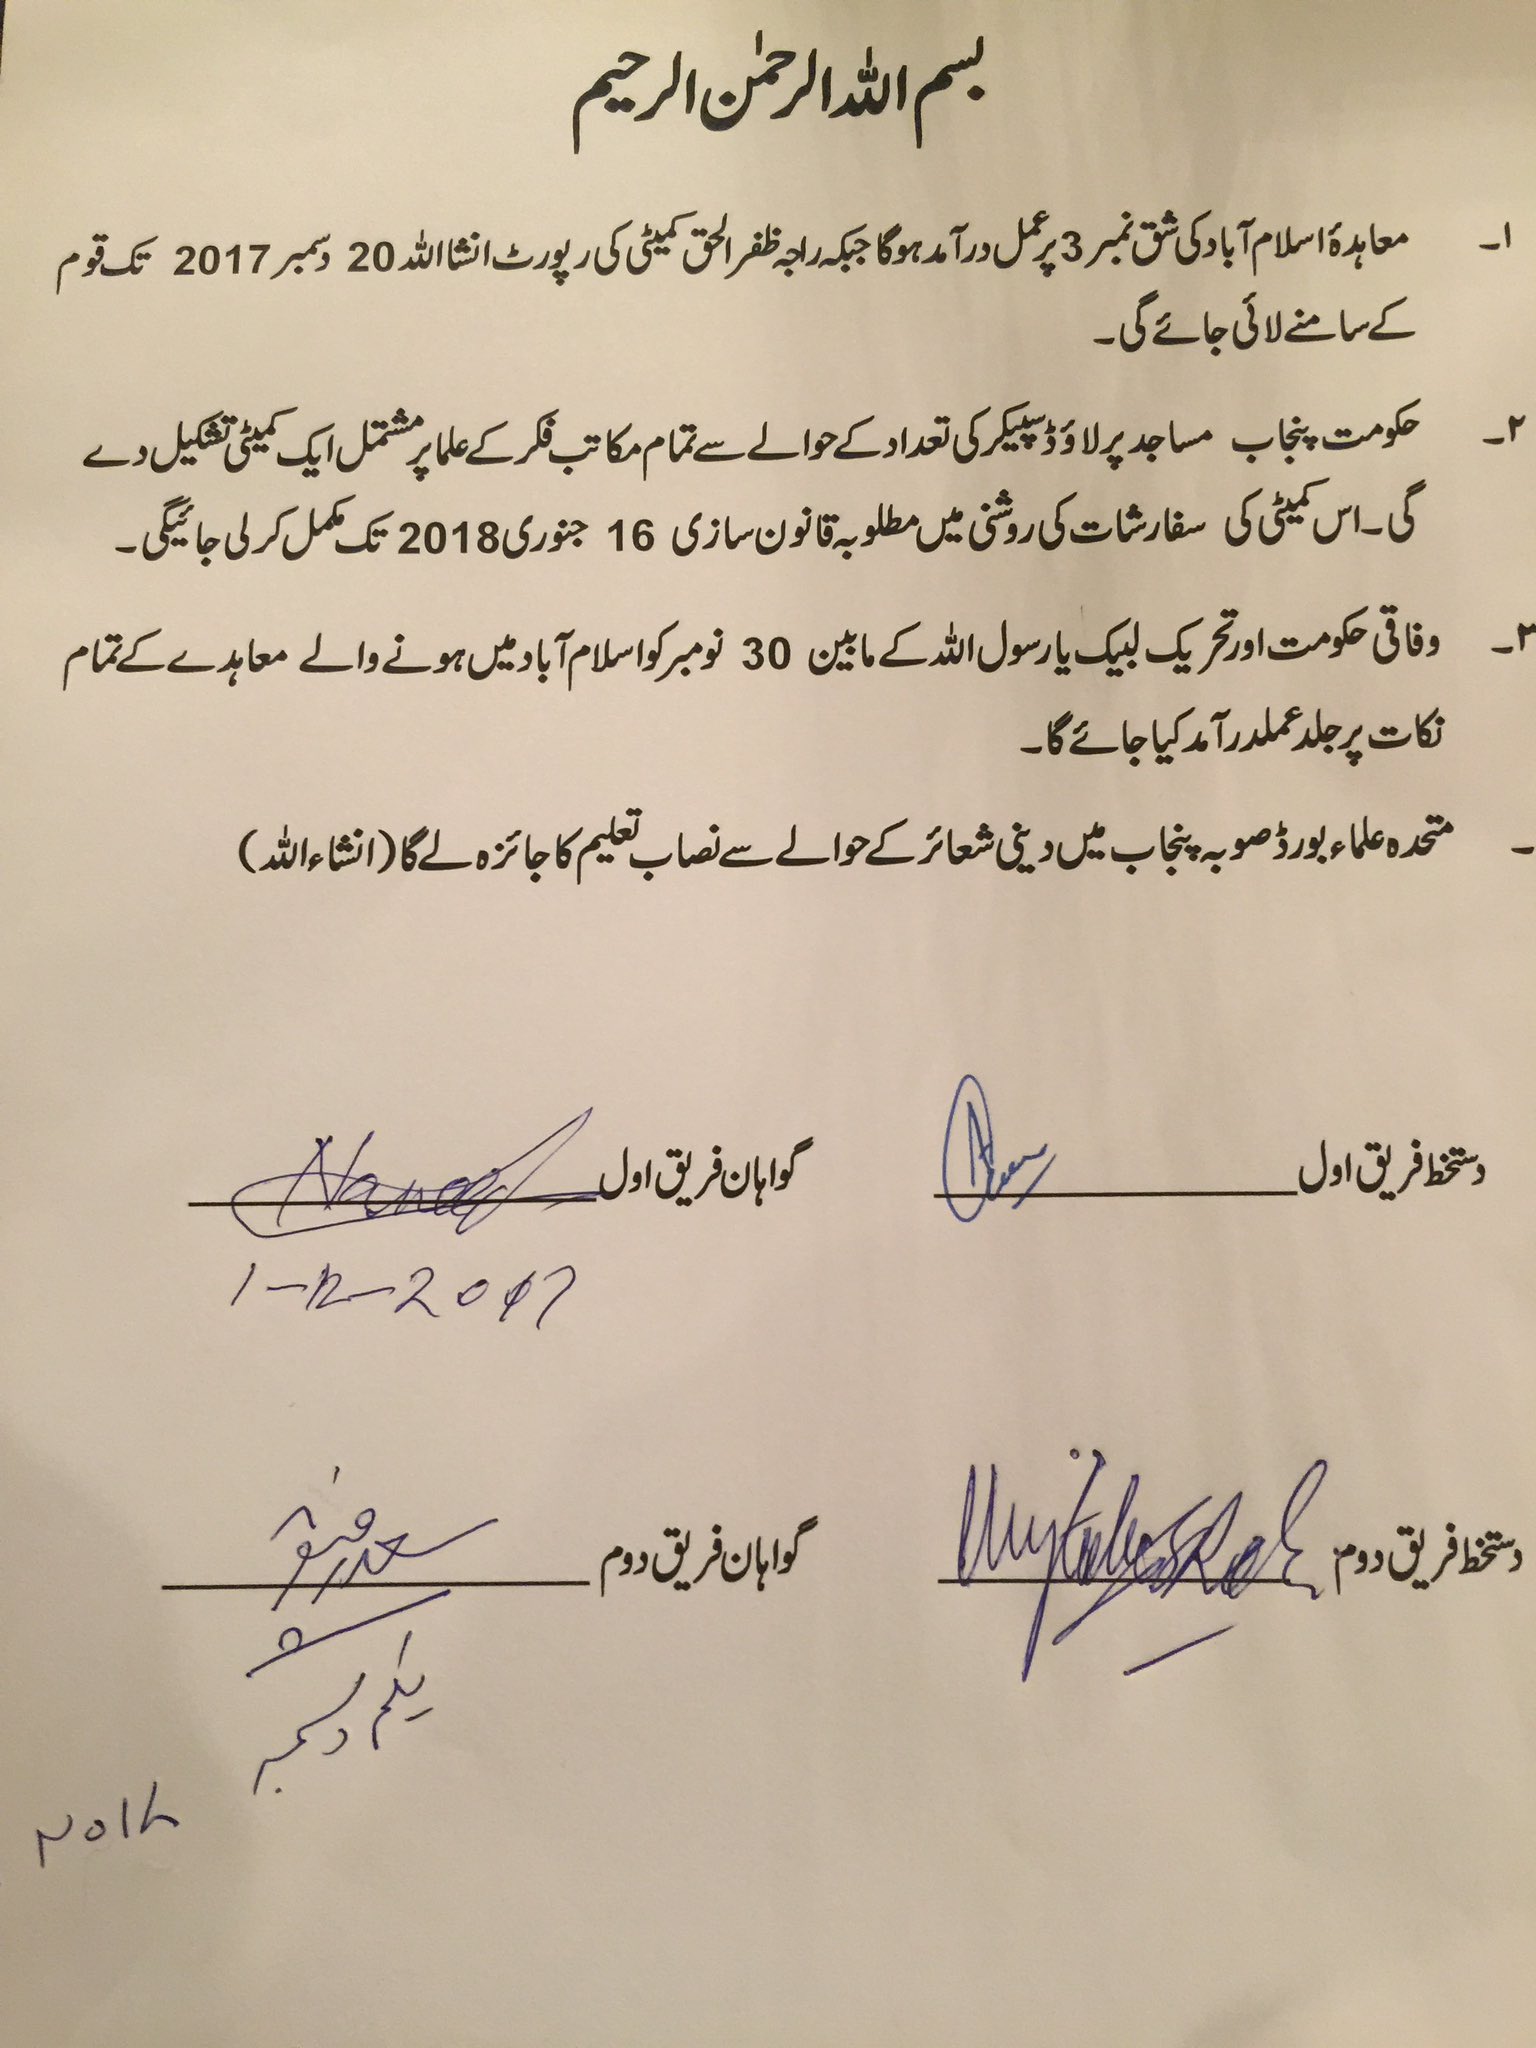 بسم اللہ الرحمٰن الرحیم
۱۔ معاہدۂ اسلام آباد کی شق نمبر 3 پر عمل درآمد ہوگا جبکہ راجہ ظفر الحق کمیٹی کی رپورٹ انشا اللہ 20 دسمبر 2017 تک قوم
کے سامنے لائی جائے گی۔
۲۔ حکومت پنجاب مساجد پر لاؤڈ سپیکر کی تعداد کے حوالے سے تمام مکاتب فکر کے علما پر مشتمل ایک کمیٹی تشکیل دے
گی۔ اس کمیٹی کی سفارشات کی روشنی میں مطلوبہ قانون سازی 16 جنوری 2018 تک مکمل کر لی جائیگی۔
۳۔ وفاقی حکومت اور تحریک لبیک یا رسول اللہ کے مابین 30 نومبر کو اسلام آباد میں ہونے والے معاہدے کے تمام
نکات پر جلد عملدرآمد کیا جائے گا۔
۔ متحدہ علماء بورڈ صوبہ پنجاب میں دینی شعائر کے حوالے سے نصاب تعلیم کا جائزہ لے گا (انشاء اللہ)
دستخط فریق اول گواہان فریق اول
1-12-2017
دستخط فریق دوم گواہان فریق دوم سعد رفیق
یکم دسمبر
۲۰۱۷